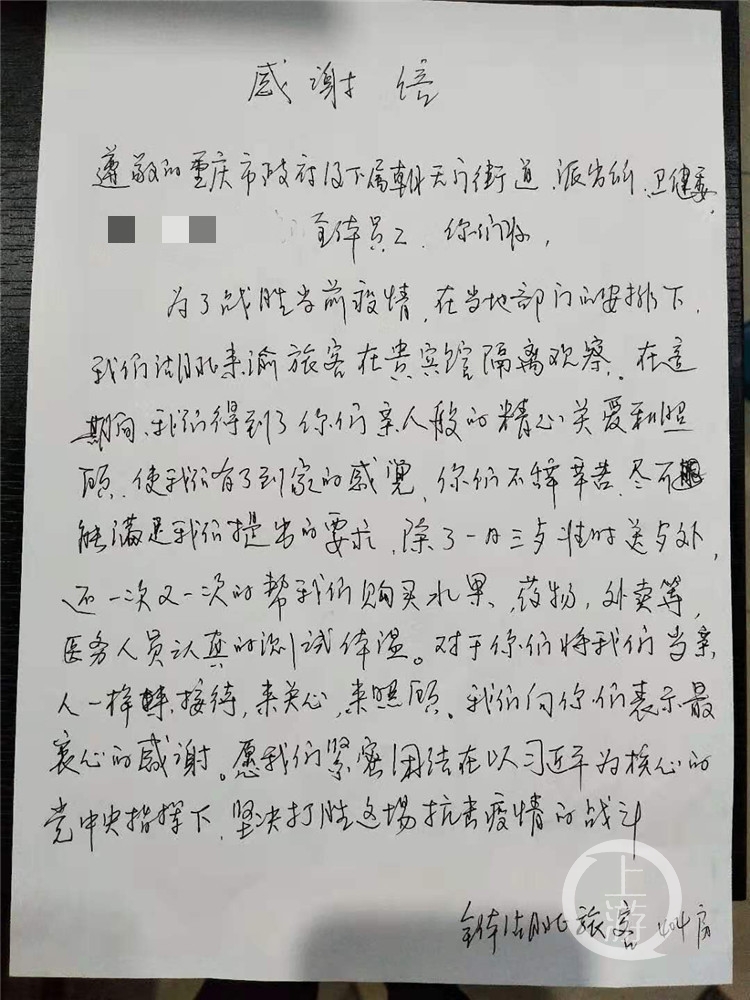 感谢信
尊敬的重庆市政府及下属朝天门街道、派出所、卫健委、
全体员工、你们好,
为了战胜当前疫情,在当地部门的安排下,
我们湖北来渝旅客在贵宾馆隔离观察。在这
期间、我们得到了你们亲人般的精心关爱和照
顾、使我们有了到家的感觉,你们不辞辛苦、尽可
能满足我们提出的要求,除了一日三歺准时送歺外,
还一次又一次的帮我们购买水果、药物,外卖等,
医务人员认真的测试体温。对于你们将我们当亲
人一样接待,来关心,来照顾、我们向你们表示最
衷心的感谢。愿我们紧密团结在以习近平为核心的
党中央指挥下,坚决打胜这场抗击疫情的战斗
全体湖北旅客 404房
上游